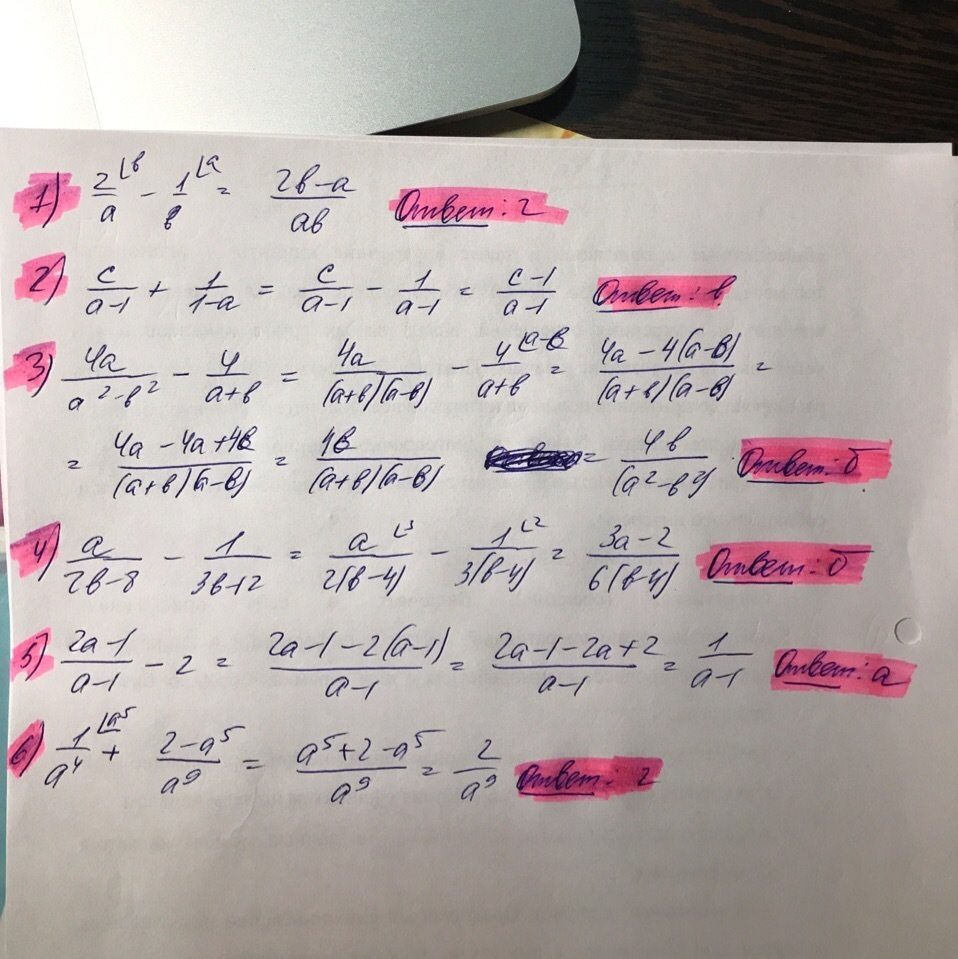 1) 2/a ⌊в - 1/в ⌊a = 2в-a/aв Ответ: г
2) c/a-1 + 1/1-a = c/a-1 - 1/a-1 = c-1/a-1 Ответ: в
3) 4a/a²-в² - 4/a+в = 4a/(a+в)(a-в) - 4/a+в ⌊a-в = 4a-4(a-в)/(a+в)(a-в) =
= 4a-4a+4в/(a+в)(a-в) = 4в/(a+в)(a-в) = 4в/(a²-в²) Ответ: б
4) a/2в-8 - 1/3в-12 = a/2(в-4) ⌊3 - 1/3(в-4) ⌊2 = 3a-2/6(в-4) Ответ: б
5) 2a-1/a-1 - 2 = 2a-1-2(a-1)/a-1 = 2a-1-2a+2/a-1 = 1/a-1 Ответ: а
6) 1/a⁴ ⌊a⁵ + 2-a⁵/a⁹ = a⁵+2-a⁵/a⁹ = 2/a⁹ Ответ: г